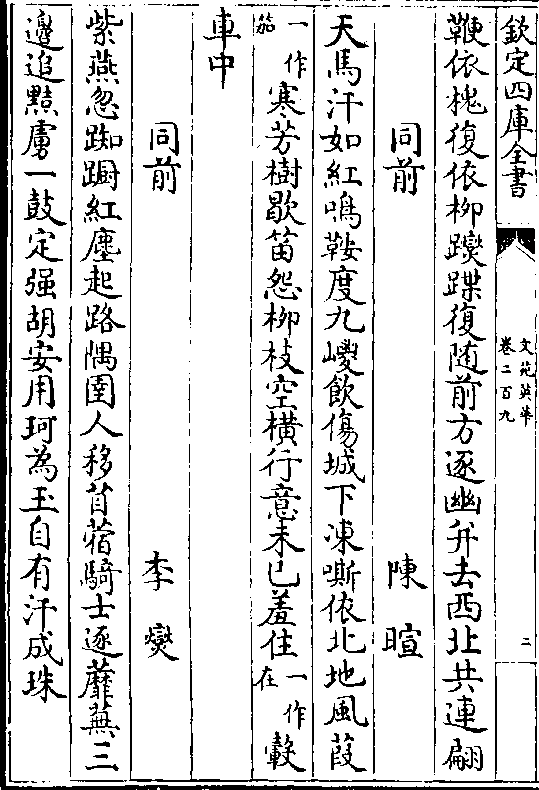 欽定四庫全書
文苑英華
卷二百九
二
鞭依槐復依柳躞蹀復随前方逐幽并去西北共連翩
同前 陳暄
天馬汗如紅鳴鞍度九嵕飲傷城下凍嘶依北地風葭
一作笳寒芳樹歇笛怨柳枝空横行意未已羞住一作在轂
車中
同前 李燮
紫燕忽踟蹰紅塵起路隅圉人移苜蓿騎士逐蘼蕪三
邊追黠虜一鼓定强胡安用珂為玉自有汗成珠